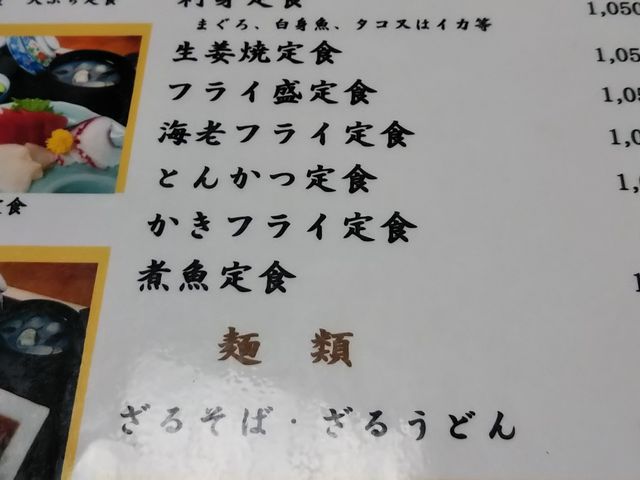 刺身定食 1,050
まぐろ、白身魚、タコ又はイカ等
生姜焼定食 1,05
フライ盛定食 1,05
海老フライ定食 1,0
とんかつ定食 1,
かきフライ定食
煮魚定食 1
麺 類
ざるそば・ざるうどん
天ぷら定食
定食